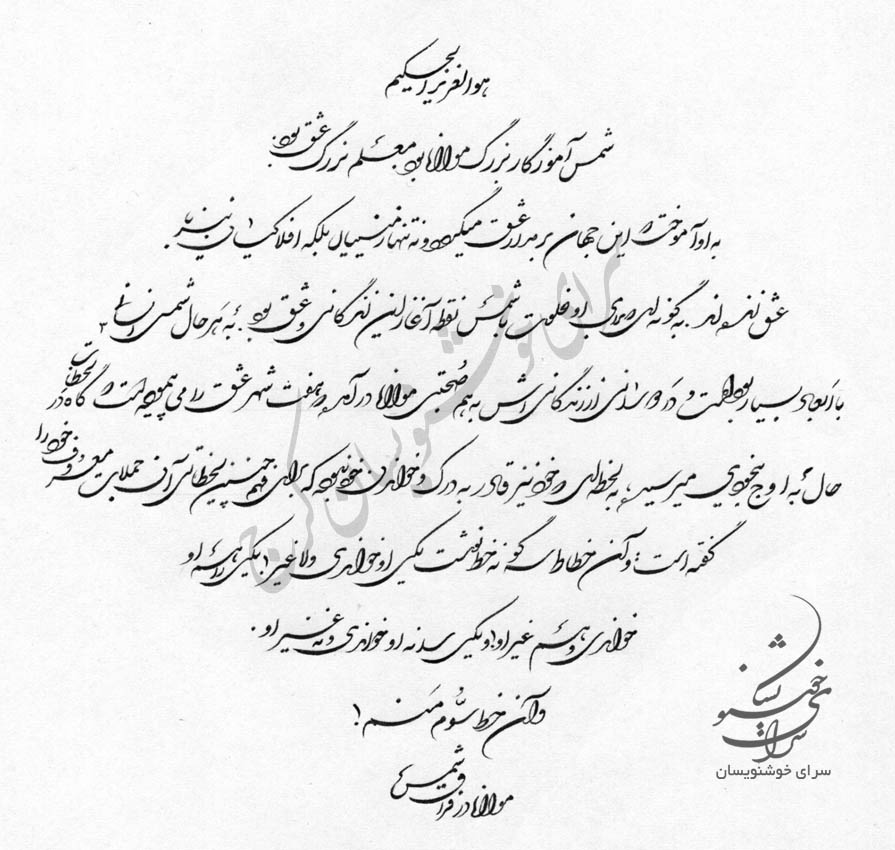 هوالعزیز الحکیم
شمس آموزگار بزرگ مولانا بود معلم بزرگ عشق بود.
به او آموخت که این جهان بر مدار عشق میگردد و نه تنها زمینیان بلکه افلاکیان نیز با
عشق زنده اند. به گونه ای که برای او خلوت با شمس نقطه آغاز این زندگانی و عشق بود. به هر حال شمس
با ابعاد بسیار بود است و در دورانی از زندگانی اش به هم صحبتی مولانا در آمد که هفت شهر عشق را می پیموده است که گاه در لحظات
حال به اوج بیخودی میرسید، به لحظه ای که خود نیز قادر به درک و خواندن خود نبود که برای فهم چنین لحظاتی آن جملات معروف خود را
گفته است: و آن خطاط سه گونه خط نوشت یکی او خواندی و لا غیر! یکی را هم او
خواندی و هم غیر او! و یکی سه نه او خواندی و نه غیر او.
و آن خط سوم منم!
مولانا در فراق شمس
سرای خوشنویسان
سرای خوشنویسان
سرای خوشنویسان کرج